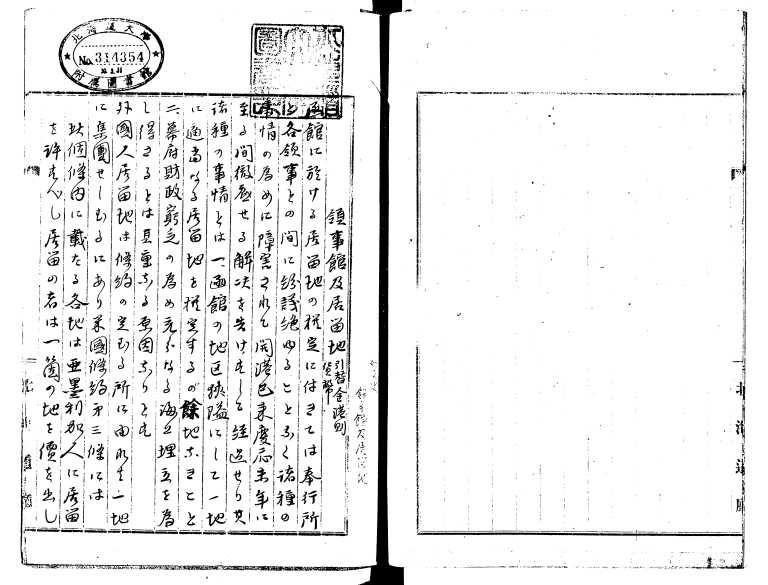 領事館及居留地
函館に於ける居留地の撰定にはきては奉行所
と各領事との間に紛議絶ゆることなく諸種の
事情の為めに障害されて開港已来慶応末年に
至る間徹底せる解决を告けすして経過せり其
諸種の事情とは一函館の地区狭隘にして一地
に適当なる居留地を撰定するの餘地なきこと
二幕府財政窮乏の為め充分なる海面埋立を為
し得さるとは其重なる原因なりとも
外国人居留地は條約の定むる所に由れは一地
に集團せしむるにあり米國條約第三條には
此個條内に載たる各地は亜墨利加人に居留
を許すへし居留の者は一箇の地を價を出し
北海道大學
No.314354
附属圖書館
北海道廳